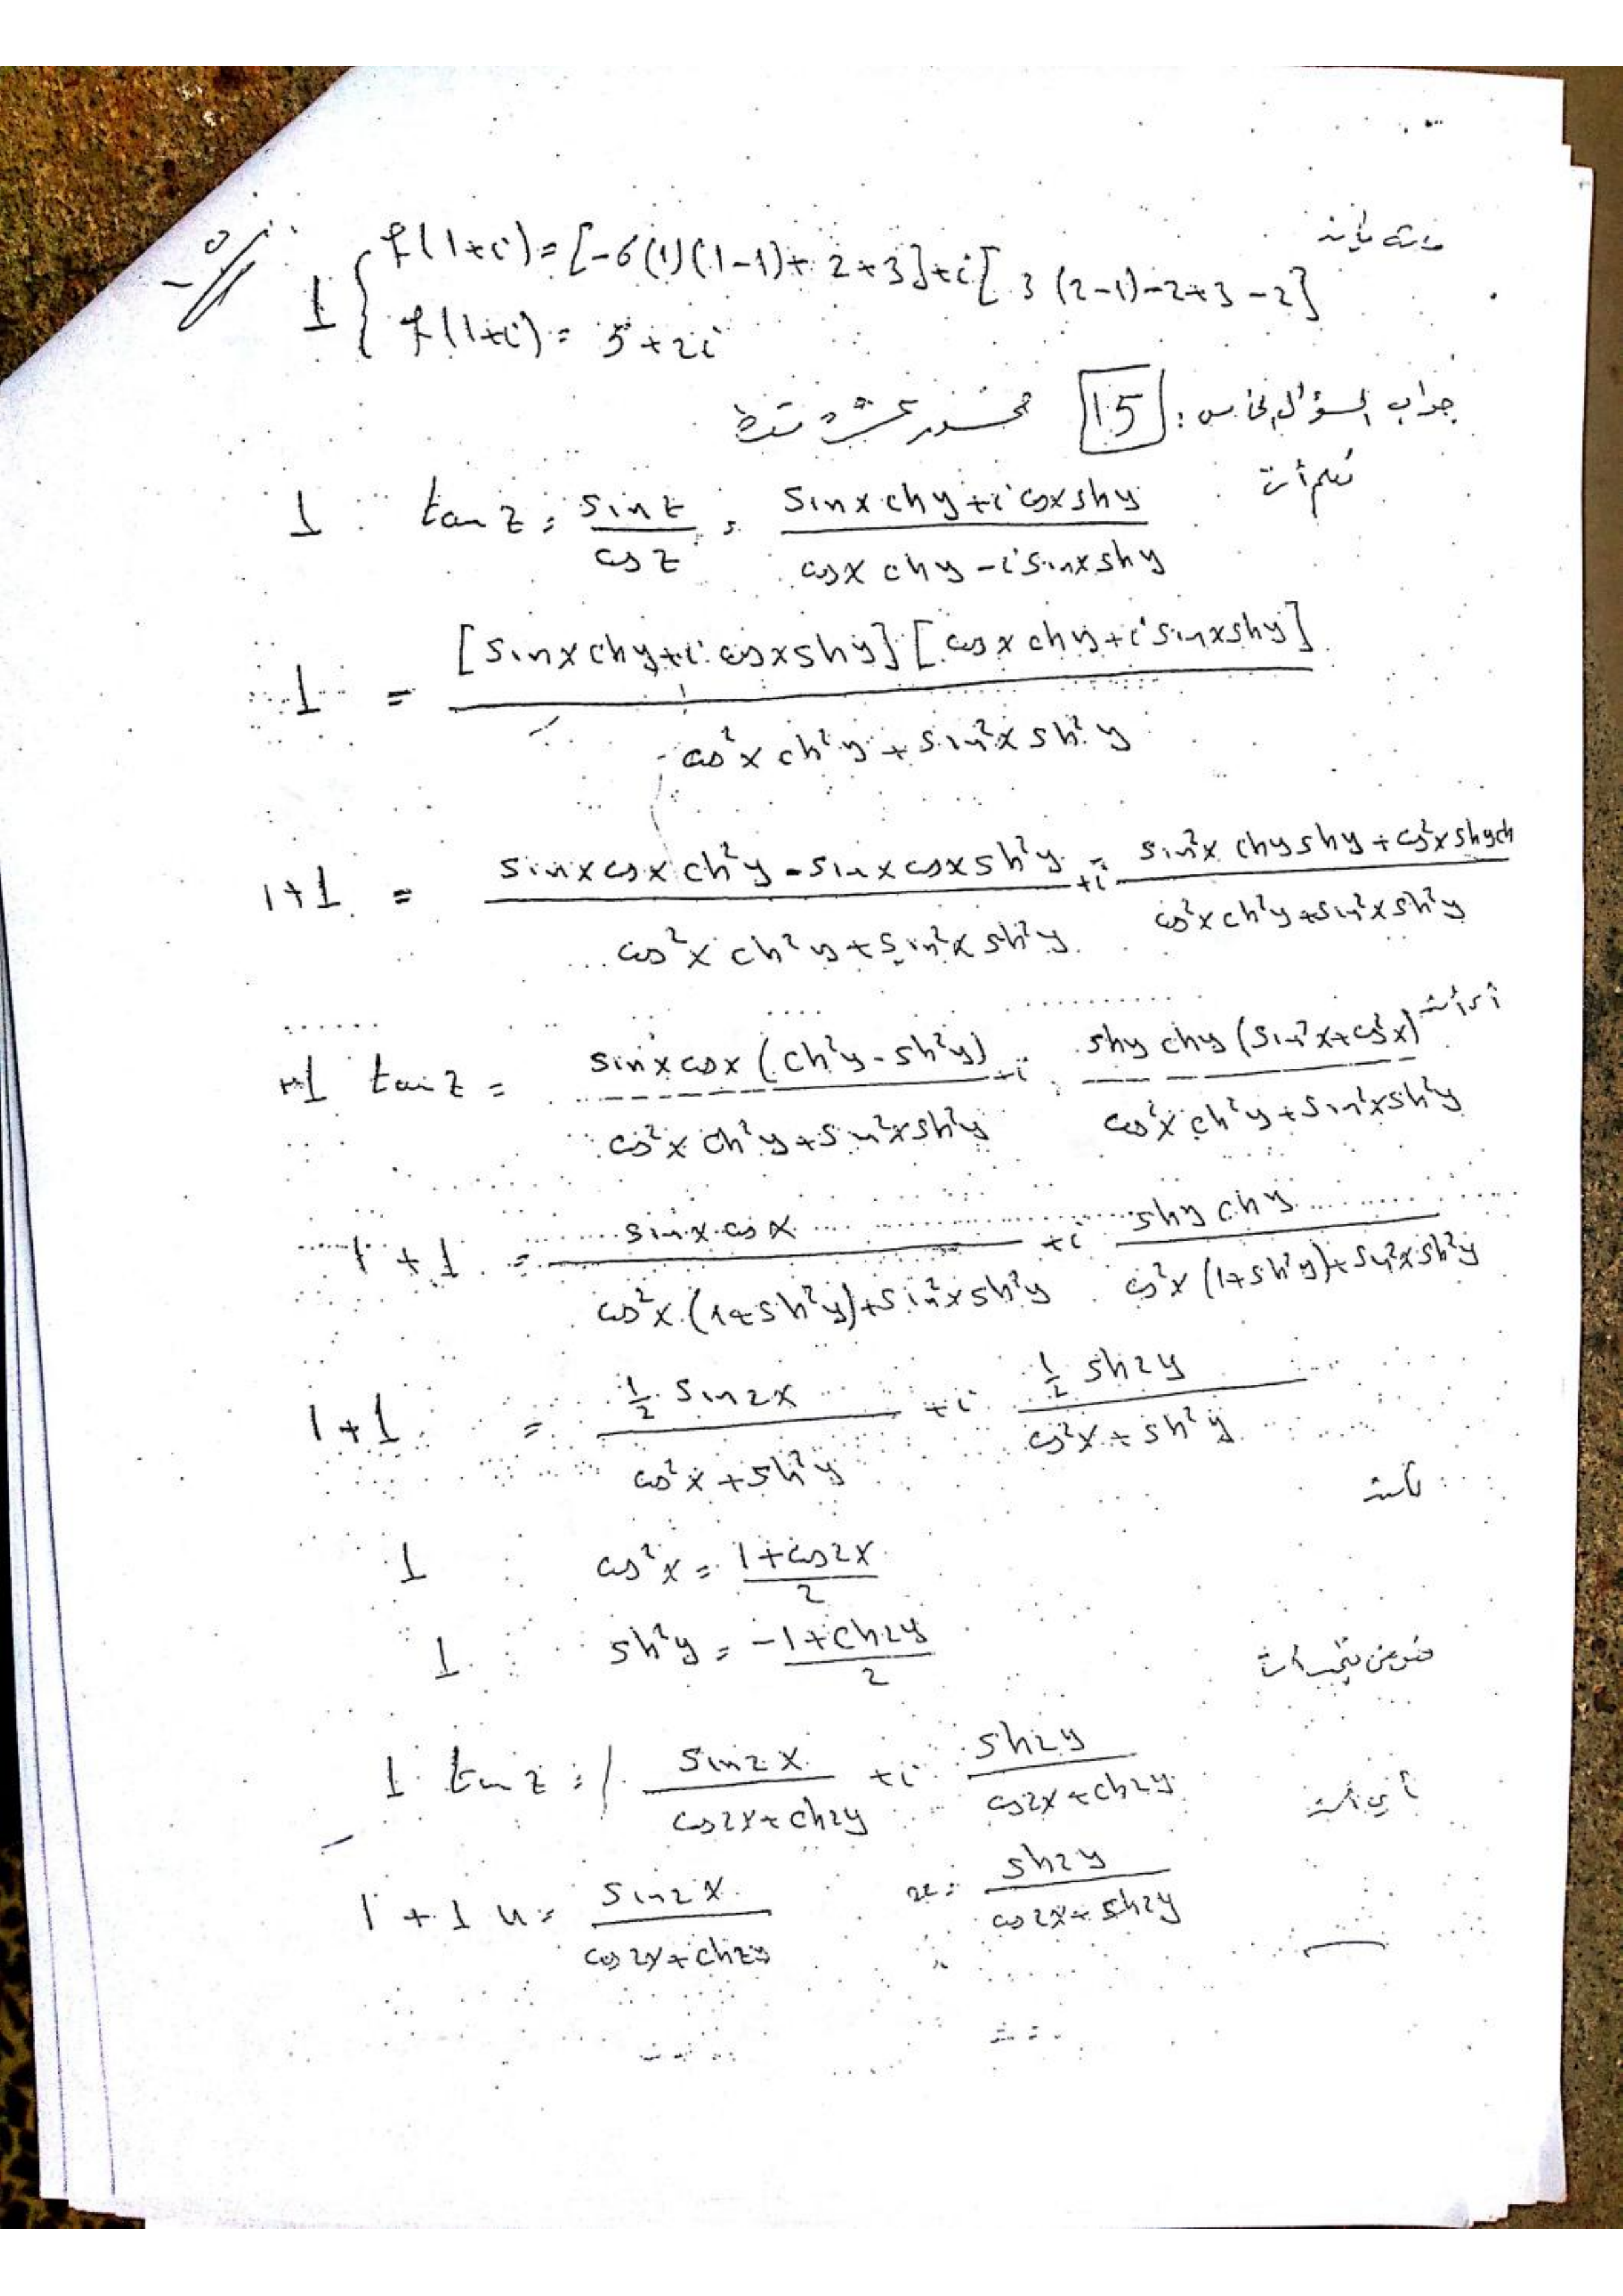 f(1+i) = [-6(1)(1-1)+2+3]+i[3(2-1)-2+3-2]
1 { f(1+i) = 5+2i
جواب السؤال الخامس: 15 خمسة عشرة نقطة
نعلم أن
1 tan z = sin z / cos z = (sin x ch y + i cos x sh y) / (cos x ch y - i sin x sh y)
1 = [sin x ch y + i cos x sh y][cos x ch y + i sin x sh y] / (cos²x ch²y + sin²x sh²y)
1+1 = (sin x cos x ch²y - sin x cos x sh²y) / (cos²x ch²y + sin²x sh²y) + i (sin²x ch y sh y + cos²x sh y ch) / (cos²x ch²y + sin²x sh²y)
أي أن
+1 tan z = sin x cos x (ch²y - sh²y) / (cos²x ch²y + sin²x sh²y) + i sh y ch y (sin²x + cos²x) / (cos²x ch²y + sin²x sh²y)
1+1 = sin x cos x / (cos²x (1+sh²y) + sin²x sh²y) + i sh y ch y / (cos²x (1+sh²y) + sin²x sh²y)
1+1 = ½ sin 2x / (cos²x + sh²y) + i ½ sh 2y / (cos²x + sh²y)
1 cos²x = (1+cos 2x) / 2
1 sh²y = (-1+ch 2y) / 2
1 tan z = sin 2x / (cos 2x + ch 2y) + i sh 2y / (cos 2x + ch 2y)
أي أن
1+1 u = sin 2x / (cos 2x + ch 2y) = sh 2y / (cos 2x + sh 2y)